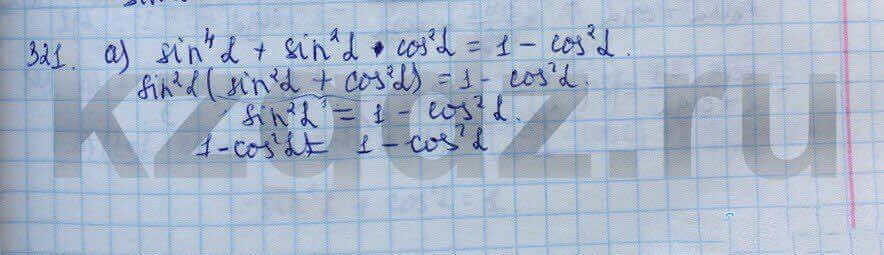 321. а) sin⁴α + sin²α · cos²α = 1 - cos²α.
sin²α (sin²α + cos²α) = 1 - cos²α.
sin²α = 1 - cos²α.
1 - cos²α = 1 - cos²α
kzgdz.ru